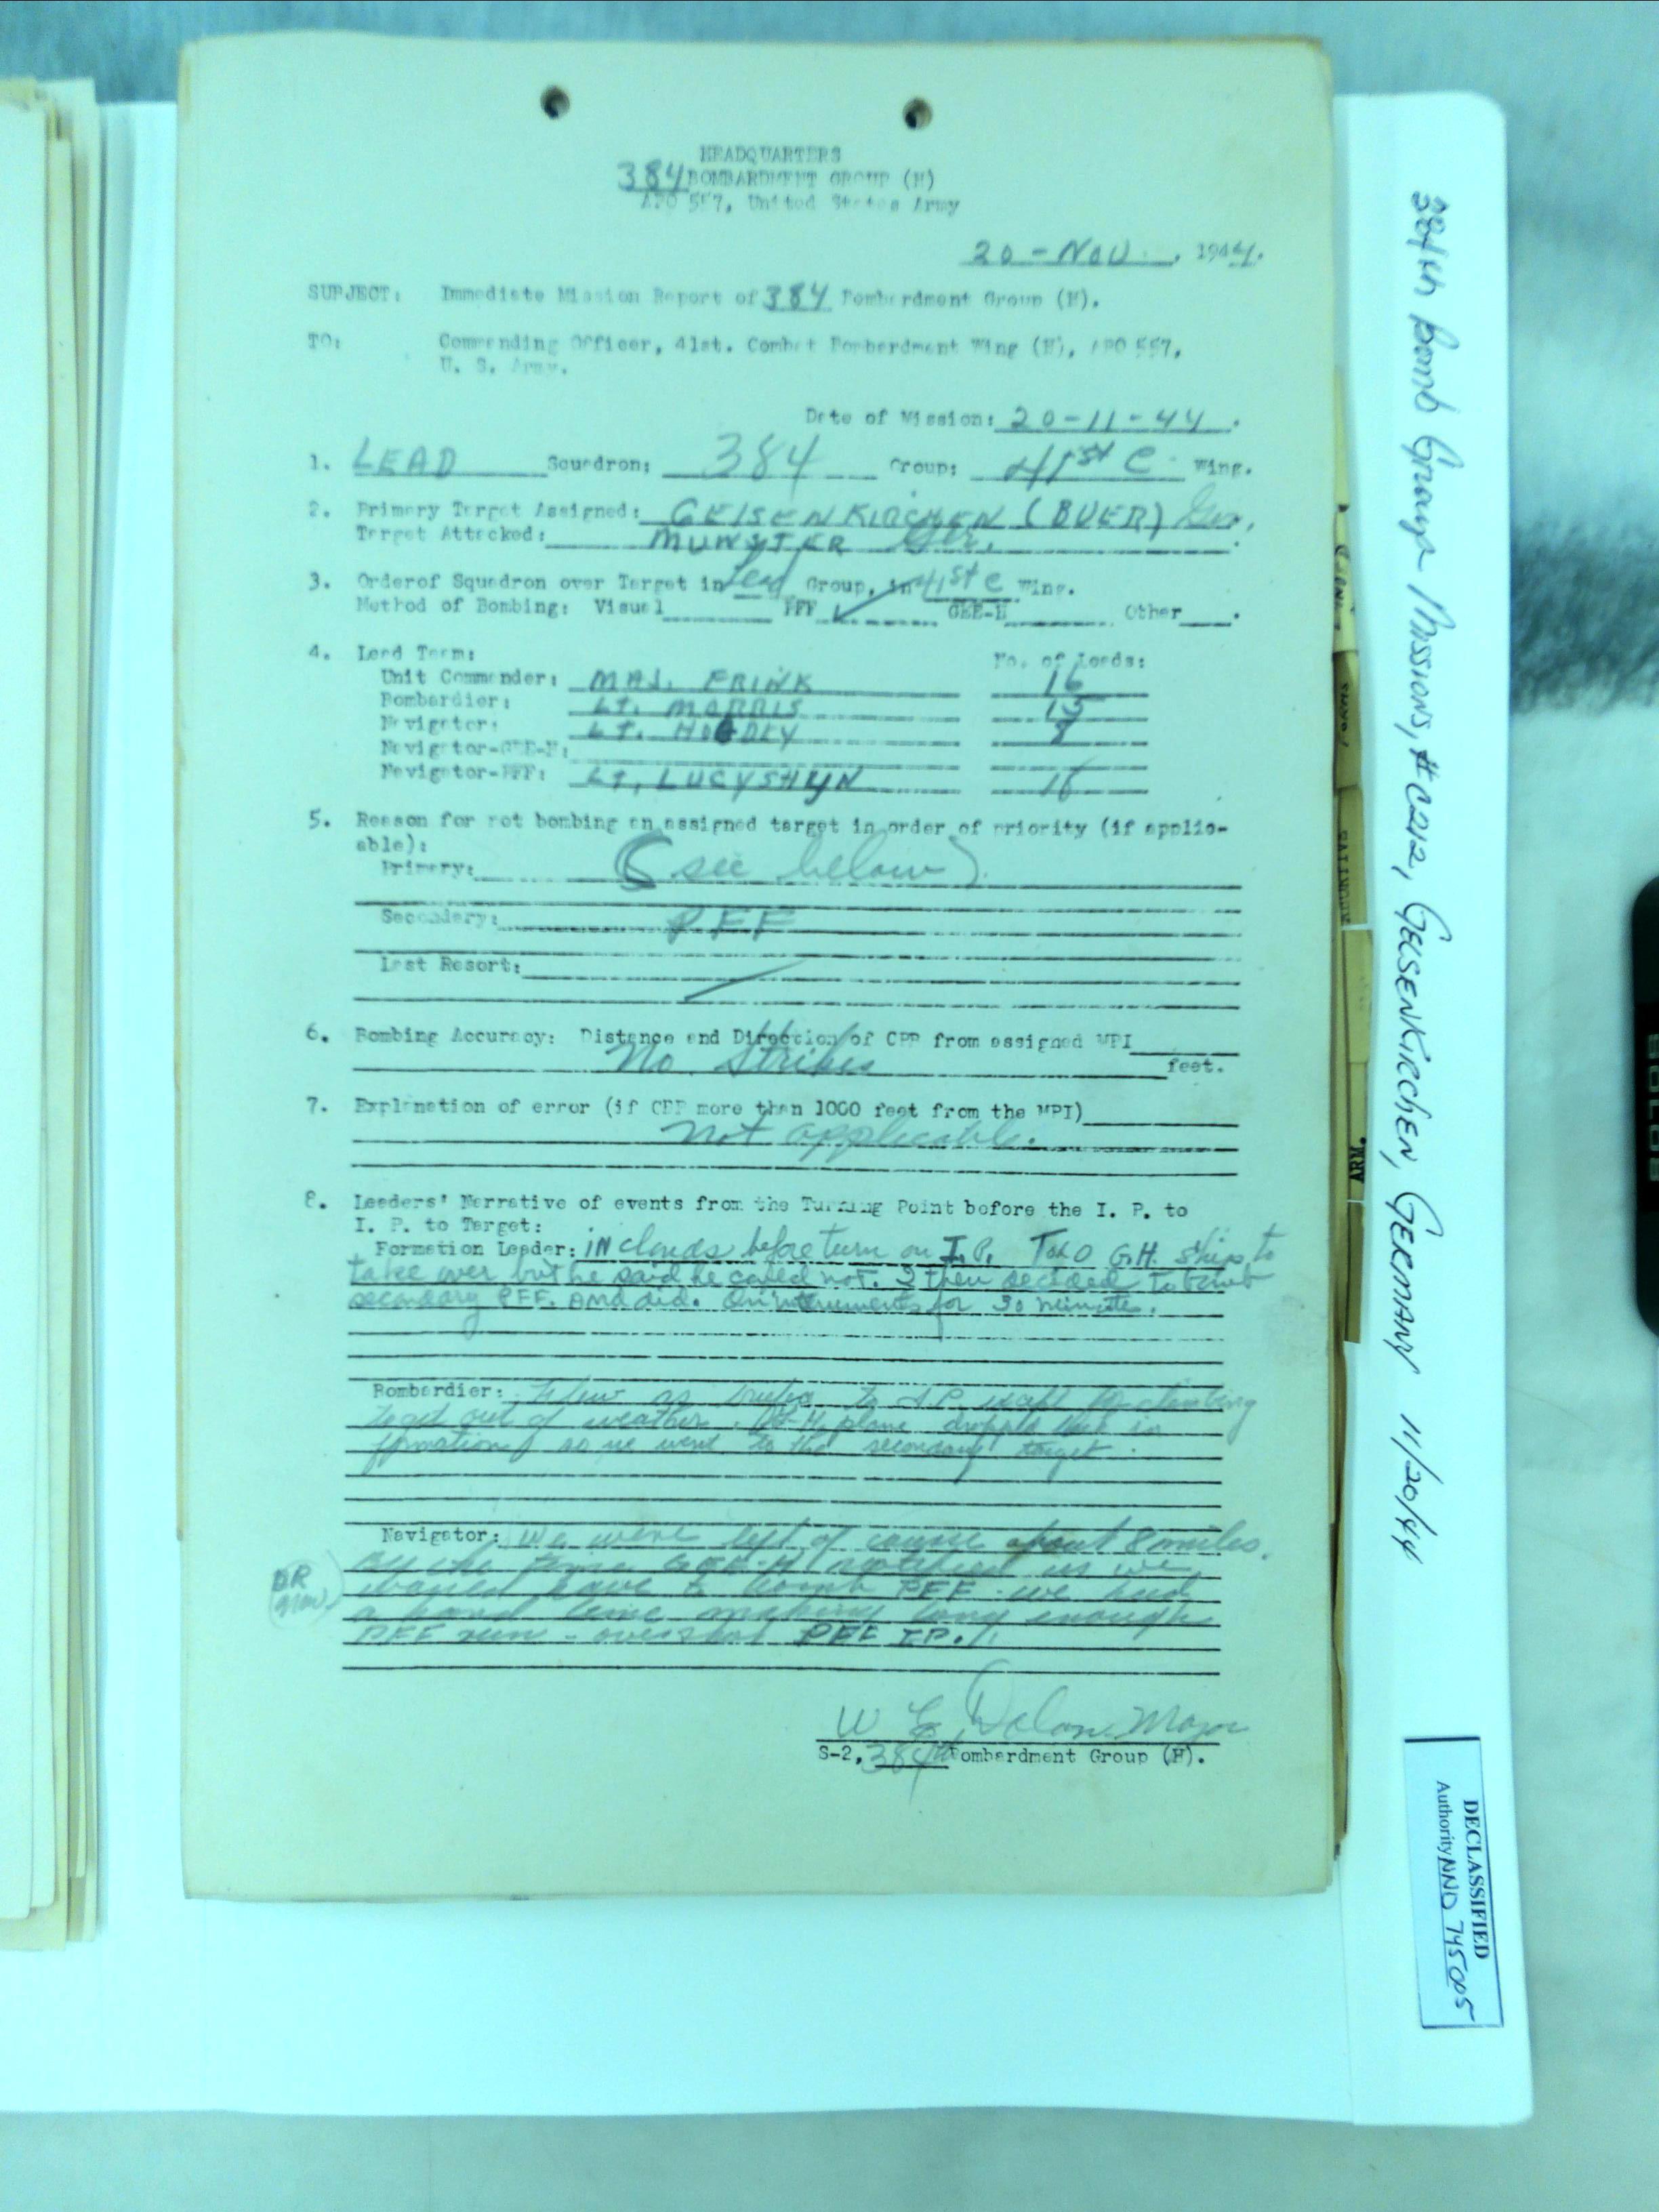 HEADQUARTERS
384 BOMBARDMENT GROUP (H)
APO 557, United States Army
20 - NOV. , 1944.
SUBJECT: Immediate Mission Report of 384 Bombardment Group (H).
TO: Commanding Officer, 41st. Combat Bombardment Wing (H), APO 557,
U. S. Army.
Date of Mission: 20-11-44.
1. LEAD Squadron; 384 Group; 41st C Wing.
2. Primary Target Assigned: GELSENKIRCHEN (BUER) Ger.
Target Attacked: MUNSTER Ger.
3. Orderof Squadron over Target in Lead Group, in 41st C Wing.
Method of Bombing: Visual PFF ✓ GEE-H Other .
4. Lead Team: No. of Leads:
Unit Commander: MAJ. FRINK 16
Bombardier: LT. MORRIS 15
Navigator: LT. 8
Navigator-GEE-H:
Navigator-PFF: LT. LUCYSHYN 16
5. Reason for not bombing an assigned target in order of priority (if applic-
able):
Primary: (see below).
Secondary: PFF
Last Resort:
6. Bombing Accuracy: Distance and Direction of CPP from assigned MPI
No Strikes feet.
7. Explanation of error (if CPP more than 1000 feet from the MPI)
not applicable.
8. Leaders' Narrative of events from the Turning Point before the I. P. to
I. P. to Target:
Formation Leader: IN clouds before turn on I.P. Told G.H. ship to
take over but he said he could not. I then decided to bomb
secondary PFF. AND did. On instruments for 30 minutes.
Bombardier: Flew as to I.P. except for climbing
to get out of weather. G-H plane dropped back in
formation so we went to the secondary target.
Navigator: We were left of course about 8 miles.
By the time GEE-H notified us we
would have to bomb PFF - we had
a hard time making long enough
PFF run - overshot PFF IP.
DR
Nav.
W E Dolan Major
S-2, 384th Bombardment Group (H).
ARM.
384th Bomb Group Missions, #C212, GELSENKIRCHEN, GERMANY 11/20/44
DECLASSIFIED
Authority NND 745005